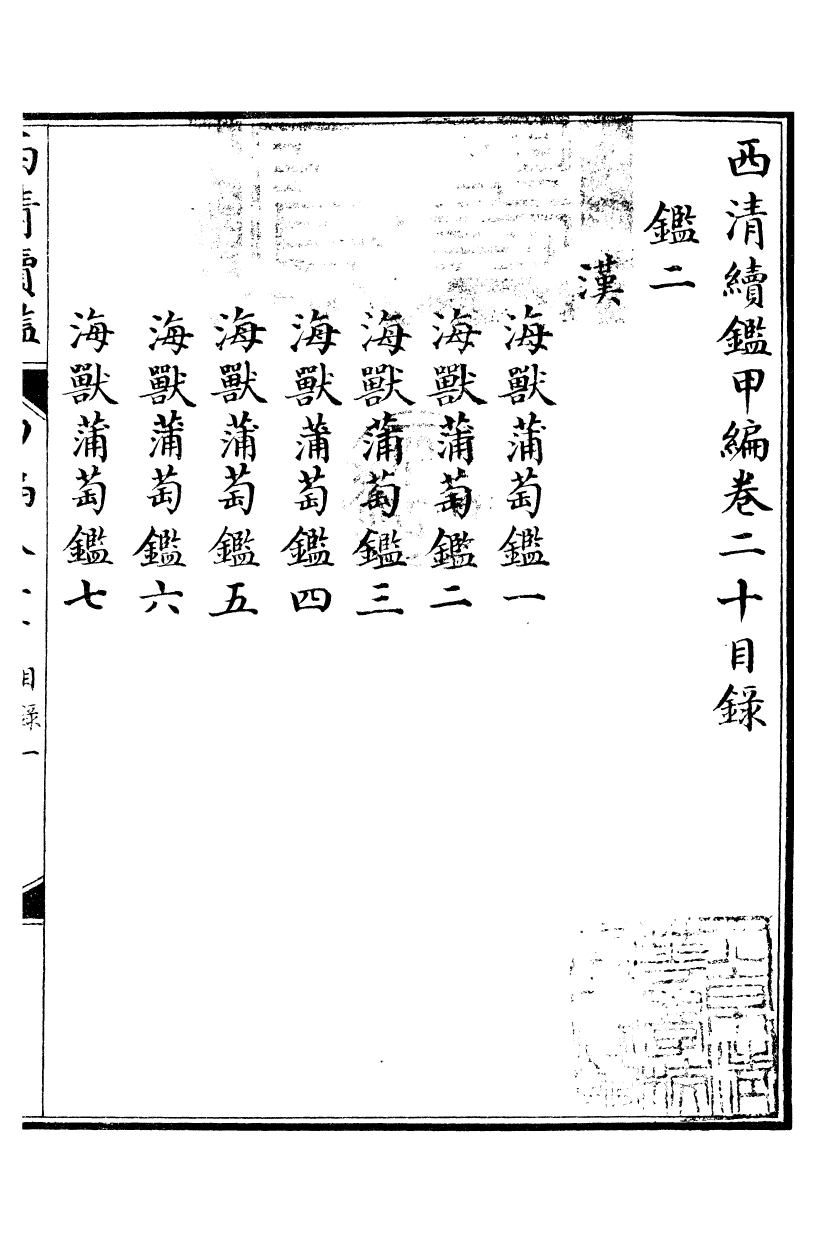 西清續鑑甲編卷二十目錄
鑑二
漢
海獸蒲萄鑑一
海獸蒲萄鑑二
海獸蒲萄鑑三
海獸蒲萄鑑四
海獸蒲萄鑑五
海獸蒲萄鑑六
海獸蒲萄鑑七
目錄一